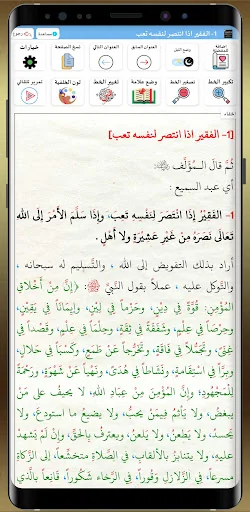 1- الفقير اذا انتصر لنفسه تعب
خيارات
نسخ الصفحة
العنوان التالي
العنوان السابق
وضع الليل
اضافة للمفضلة
تمرير تلقائي
لون الخلفية
تغيير الخط
وضع علامة
تصغير الخط
تكبير الخط
اخفاء
[1- الفقير اذا انتصر لنفسه تعب]
ثُمَّ قالَ الـمُؤلِّف ﷺ
أي عبد السميع :
1- الفَقِيْرُ إِذَا انْتَصَرَ لنَفْسِهِ تَعِبَ، وَإِذَا سَلَّمَ الأَمْرَ إلى اللهِ
تعالى نَصَرَهُ مِنْ غَيْرِ عَشِيْرَةٍ ولا أَهْلٍ.
أراد بذلك التفويض إلى الله ، والتَّسليم له سبحانه ،
والتَّوكل عليه ، عملاً بقول النَّبيِّ ﷺ: {{إنَّ مِنْ أَخْلَاقِ
المُؤْمِنِ: قُوَّةً فِي دِيْنٍ، وحَزْماً فِي لِيْنٍ، وإيْمَاناً فِي يَقِيْنٍ،
وحِرْصاً فِي عِلْمٍ، وشَفَقَةً فِي ثِقَةٍ، وحِلْمَاً فِي عِلْمٍ، وقَصْداً فِي
غِنًى، وتَجَمُّلاً فِي فَاقَةٍ، وتَحَرُّجاً عَنْ طَمَعٍ، وكَسْباً فِي حَلَالٍ،
وبِرّاً فِي اسْتِقَامَةٍ، ونَشَاطاً فِي هُدًى، ونَهْياً عَنْ شَهْوَةٍ، ورَحْمَةً
لِلْمَجْهُودِ؛ وإنَّ المُؤْمِنَ مِنْ عِبَادِ اللهِ، لا يَحِيفُ على مَنْ
يبغضُ، ولا يَأْثَم فِيمَنْ يُحِبُّ، ولا يضيعُ ما استودعَ، ولا
يحسدُ، ولا يَطْعَنُ، ولا يَلعَنُ، ويعترفُ بِالحَقِّ، وإنْ لَمْ يَشْهَدْ
عليهِ، ولا يتنابزُ بالألقابِ، في الصَّلاةِ متخشِّعاً، إلى الزَّكاةِ
مسرعاً، في الزَّلازلِ وَقُوراً، في الرَّخاءِ شَكُوراً، قانِعاً بالَّذي